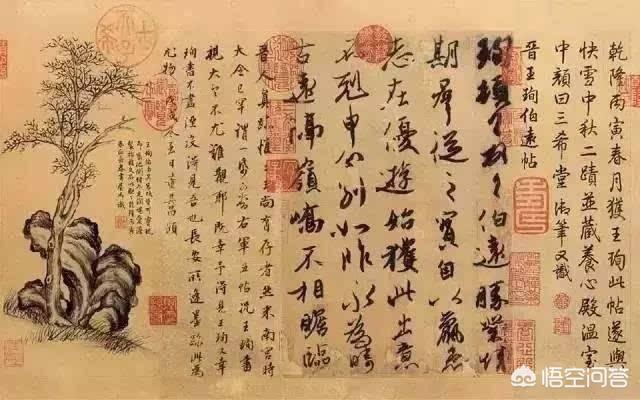 乾隆丙寅春月獲王珣此帖遂與
快雪中秋二蹟並藏養心殿溫室
中顏曰三希堂御筆又識
晉王珣伯遠帖
珣頓首頓首伯遠勝業情
期群從之寶自以羸患
志在優遊始獲此出意
不剋申分別如昨永為疇
古遠隔嶺嶠不相瞻臨
晉人真跡惟二王尚有存者然米南宮時
大令已罕謂一紙可當右軍五帖況王珣書
視大令不尤難覯耶既幸予得見王珣又幸
珣書不盡湮沒得見吾也長安所逢墨跡此為
尤物戊戌冬至日董其昌題
悟空问答